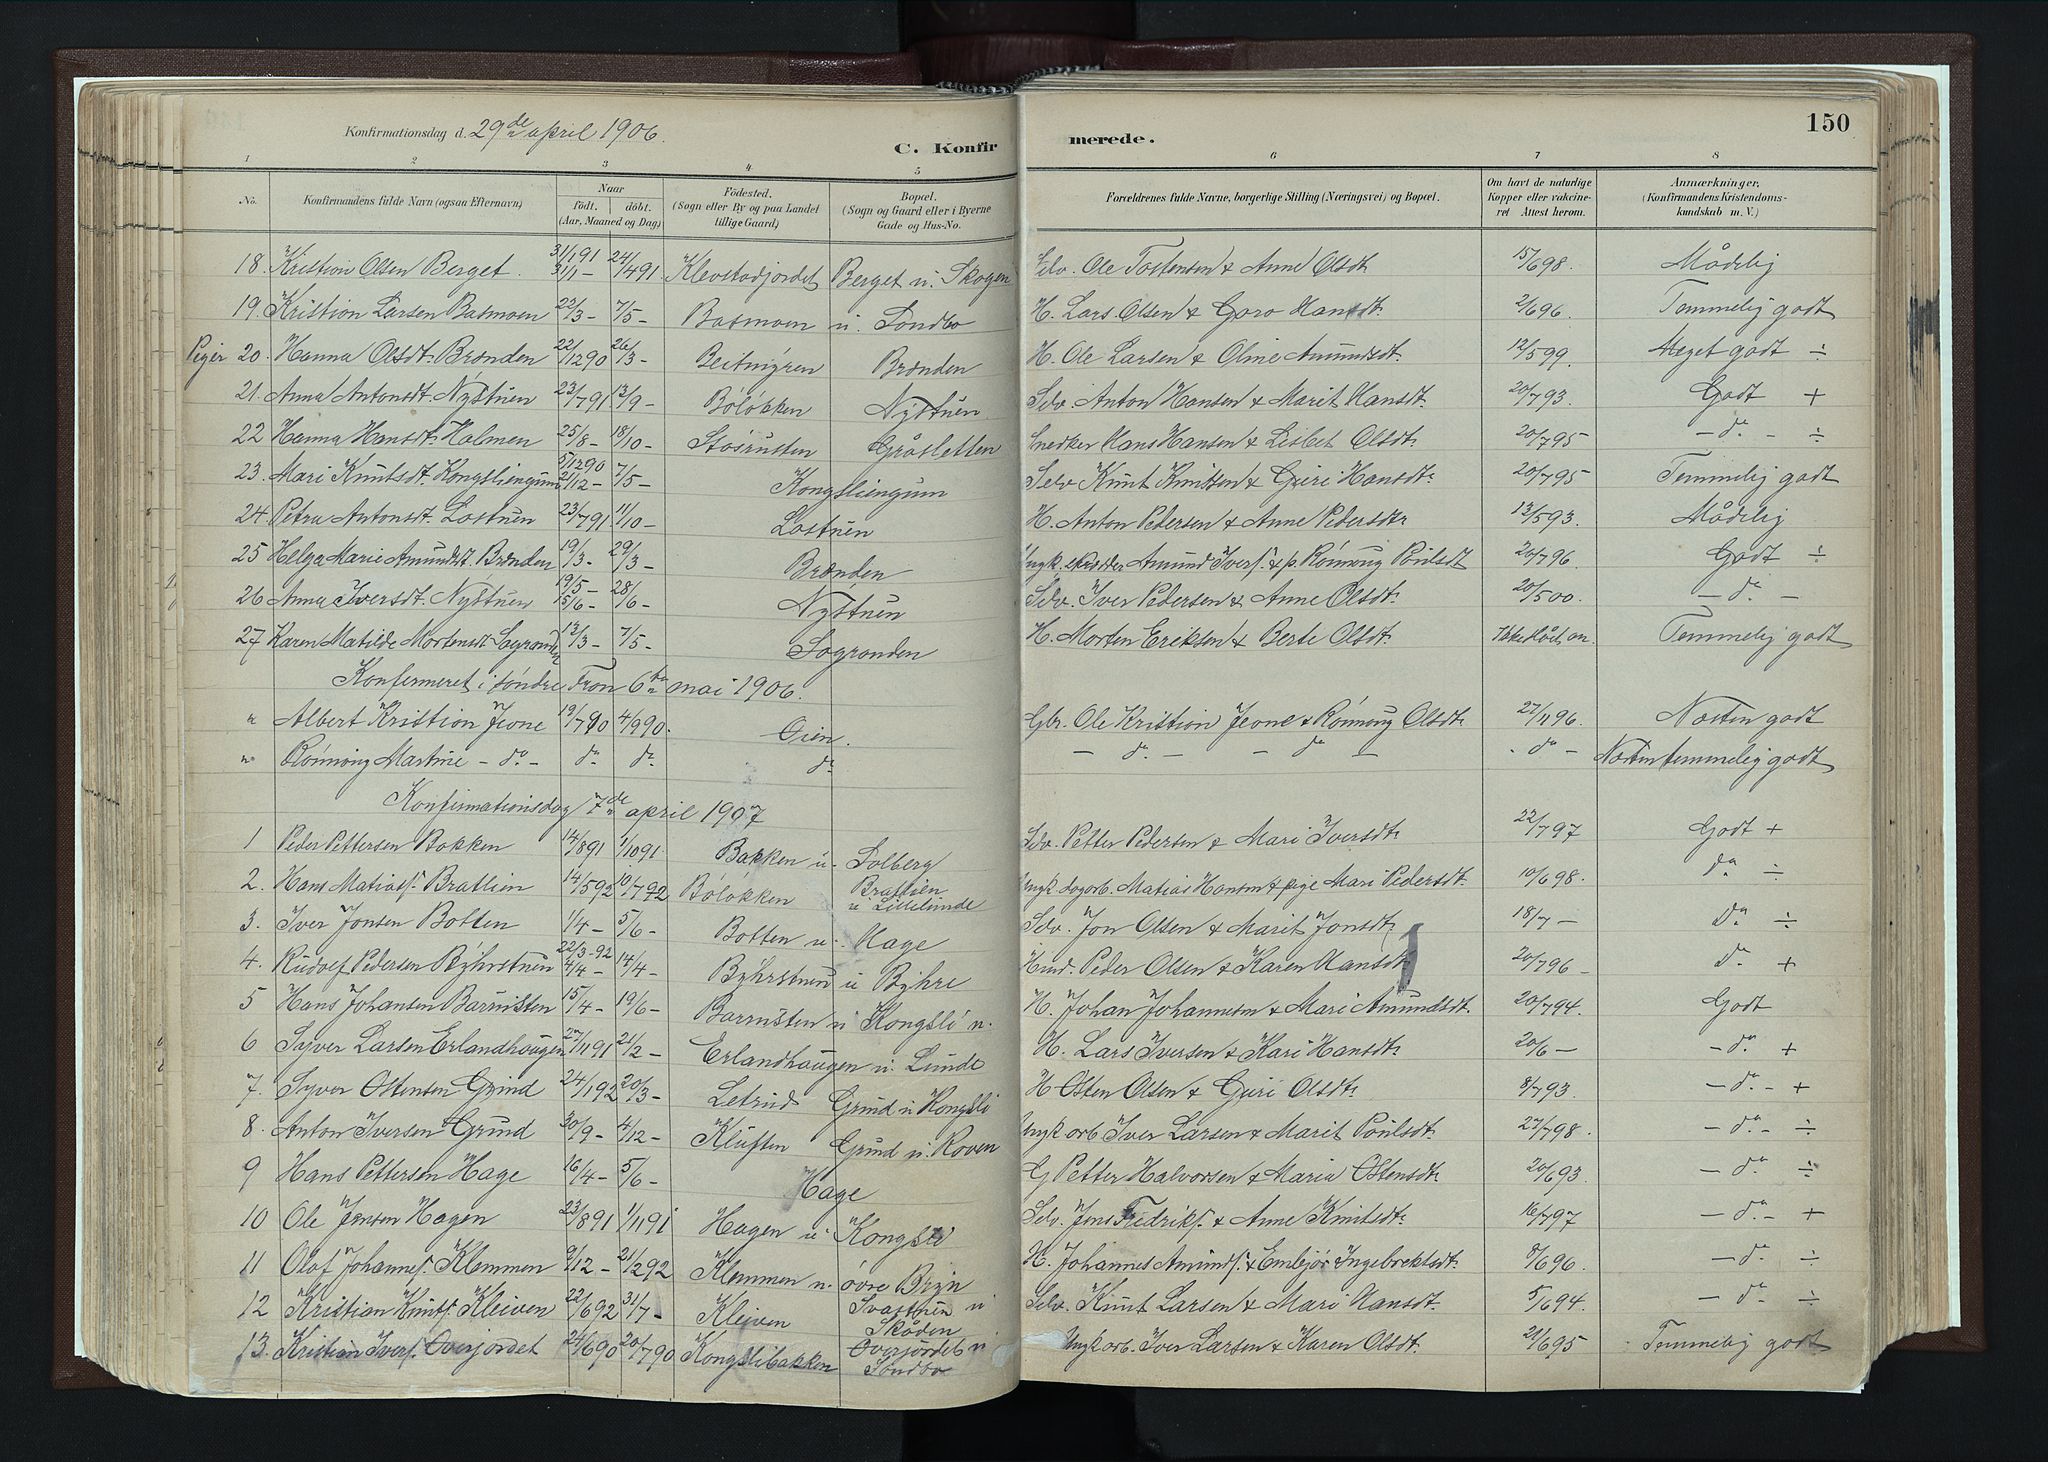 Konfirmationsdag d. 29de april 1906.
C. Konfirmerede.
150
1 2 3 4 5 6 7 8
No. Konfirmandens fulde Navn (ogsaa Efternavn). Naar födt. döbt. (Aar, Maaned og Dag) Födested. (Sogn eller By og paa Landet tillige Gaard) Bopæl. (Sogn og Gaard eller i Byerne Gade og Hus-No. Forældrenes fulde Navne, borgerlige Stilling (Næringsvei) og Bopæl. Om havt de naturlige Kopper eller vakcineret Attest herom. Anmærkninger. (Konfirmandens Kristendomskundskab m. V.)
18. Kristian Olsen Berget. 31/1 91 31/1 – 24/4 91 Klevstadjordet Berget u. Skogen Selv. Ole Tostensen & Anne Olsdt. 15/6 98. Mådelig
19. Kristian Larsen Bakmoen 22/3 – 7/5 – Bakmoen u. Sondbo H. Lars Olsen & Goro Hansdt. 2/6 96. Temmelig godt
Piger 20. Hanna Olsdt. Brænden 22/12 90 26/3 – Brænden H. Ole Larsen & Oline Amundsdt. 12/5 99. Meget godt ÷
21. Anna Antonsdt. Nystuen 23/7 91 13/9 – Böløkken Nystuen Selv. Anton Hansen & Marit Hansdt. 20/7 93. Godt +
22 Hanna Hansdt. Holmen 25/8 – 18/10 – Gråsletten Snedker Hans Hansen & Lisbet Olsdt. 20/7 95 – do. – ÷
23. Mari Knutsdt. Kongsliengum 5/12 90 21/12 – 7/5 – Kongsliengum Selv Knut Knutsen & Guri Hansdt. 20/7 95 Temmelig godt
24. Petra Antonsdt. Lostuen 23/7 91 11/10 – Lostuen H. Anton Pedersen & Anne Pedersdt. 13/5 93. Mådelig
25 Helga Marie Amundsdt. Brænden 19/3 – 29/3 – Brænden Ungk. skrædder Amund Ivers. & p. Rønnaug Poulsdt 20/7 96. Godt ÷
26 Anna Iversdt. Nystuen 19/5 – 15/6 – 28/6 – Nystuen Selv. Iver Pedersen & Anne Olsdt. 20/5 00. – do. –
27 Karen Matilde Mortensdt. Sogranden 13/3 – 7/5 – Sogranden H. Morten Eriksen & Berte Olsdt. Temmelig godt
Konfermeret i söndre Fron 6te mai 1906.
" Albert Kristian Jevne 19/7 90 4/9 90. Öien. Gbr. Ole Kristian Jevne & Rønnaug Olsdt. 27/11 96. Næsten godt
" Rønnaug Martine – do. – do. do. do. – do. – – do. – - do – Næsten temmelig godt
Konfirmationsdag 7de april 1907
1 Peder Pettersen Bakken 14/8 91 1/10 91. Bakken u. Solberg Selv. Petter Pedersen & Mari Iversdt. 22/7 97 Godt +
2. Hans Matias. Bratlien 14/5 92 10/7 92 Böløkken Bratlien u. Lillelunde Ungk. Matias Hansen & pige Mari Pedersdt. 10/6 98. do. ÷
3. Iver Jonsen Botten 1/4 – 5/6 – Botten u. Hage Selv. Jon Olsen & Marit Jonsdt. 18/7 – Do. ÷
4. Rudolf Pedersen Byhrstuen 22/3 – 92 4/4 – 14/4 – Byhrstuen u Byhre Husmd. Peder Olsen & Karen Hansdt 20/7 96 – do. +
5 Hans Johansen Barrusten 15/4 – 19/6 – Barrusten u Kongsli n. H. Johan Johannesen & Mari Amundsdt. 20/7 94. Godt
6 Syver Larsen Erlandhaugen 27/11 91 21/2 – Erlandhaugen u. Lunde H. Lars Iversen & Kari Hansdt. 20/6 – – do. +
7. Syver Ostensen Grind 24/1 92 20/3 – Letrud Grind u Kongsli H Osten Olsen & Guri Olsdt. 8/7 93. – do. – +
8. Anton Iversen Grind 30/9 – 4/12 – Kluften Grind u. Roven Ungk arb Iver Larsen & Marit Poulsdt. 27/7 98. – do. – ÷
9 Hans Pettersen Hage 16/4 – 5/6 – Hage G Petter Halvorsen & Maria Ostensdt. 20/6 93. – do. ÷
10 Ole Jensen Hagen 23/8 91 1/11 91 Hagen u. Kongsli Selv. Jens Fredriks. & Anne Knutsdt. 16/7 97 – do. – +
11 Olaf Johannes. Klemmen 9/12 – 21/2 92 Klemmen u. övre Bryn H. Johannes Amunds. & Embjør Ingebrektsdt. 8/6 96. – do. ÷
12 Kristian Knuts. Kleiven 22/6 92 31/7 – Kleiven Svastuen u Skåden Selv. Knut Larsen & Mari Hansdt. 5/6 94. – do. ÷
13. Kristian Ivers. Overjordet 24/6 90 20/7 90 Kongslibakken Overjordet u Sondbo Ungk arb. Iver Larsen & Karen Olsdt. 21/6 95 Temmelig godt